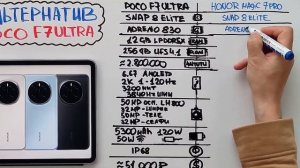 АЛЬТЕРНАТИВ
POCO F7 ULTRA
POCO F7ULTRA
SNAP 8 ELITE
ADRENO 830
12GB LPDDR5X
256GB UFS4.1
≈ 2.800.000
ANTUTU
6.67 AMOLED
2K 1-120Hz
3200 НИТ
3840 Hz ШИМ
50МР ОСН. LH800
32МР-ШИРИК
50МР-ТЕЛЕ
32МР-СЕЛФИ
5300mAh 120W
50W
IP68
≈ 51.000₽
HONOR MAGIC 7 PRO
SNAP 8 ELITE
ADRENO